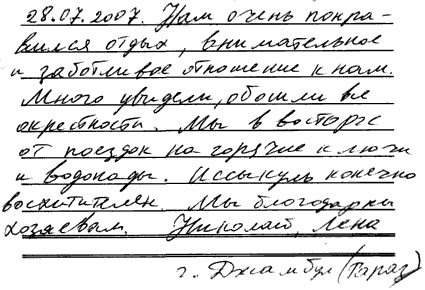 28.07.2007. Нам очень понра-
вился отдых, внимательное
и заботливое отношение к нам.
Много увидели, обошли все
окрестности. Мы в восторге
от поездок на горячие ключи
и водопады. Иссыкуль конечно
восхитителен. Мы благодарны
хозяевам. Николай, Лена
г. Джамбул (Тараз)